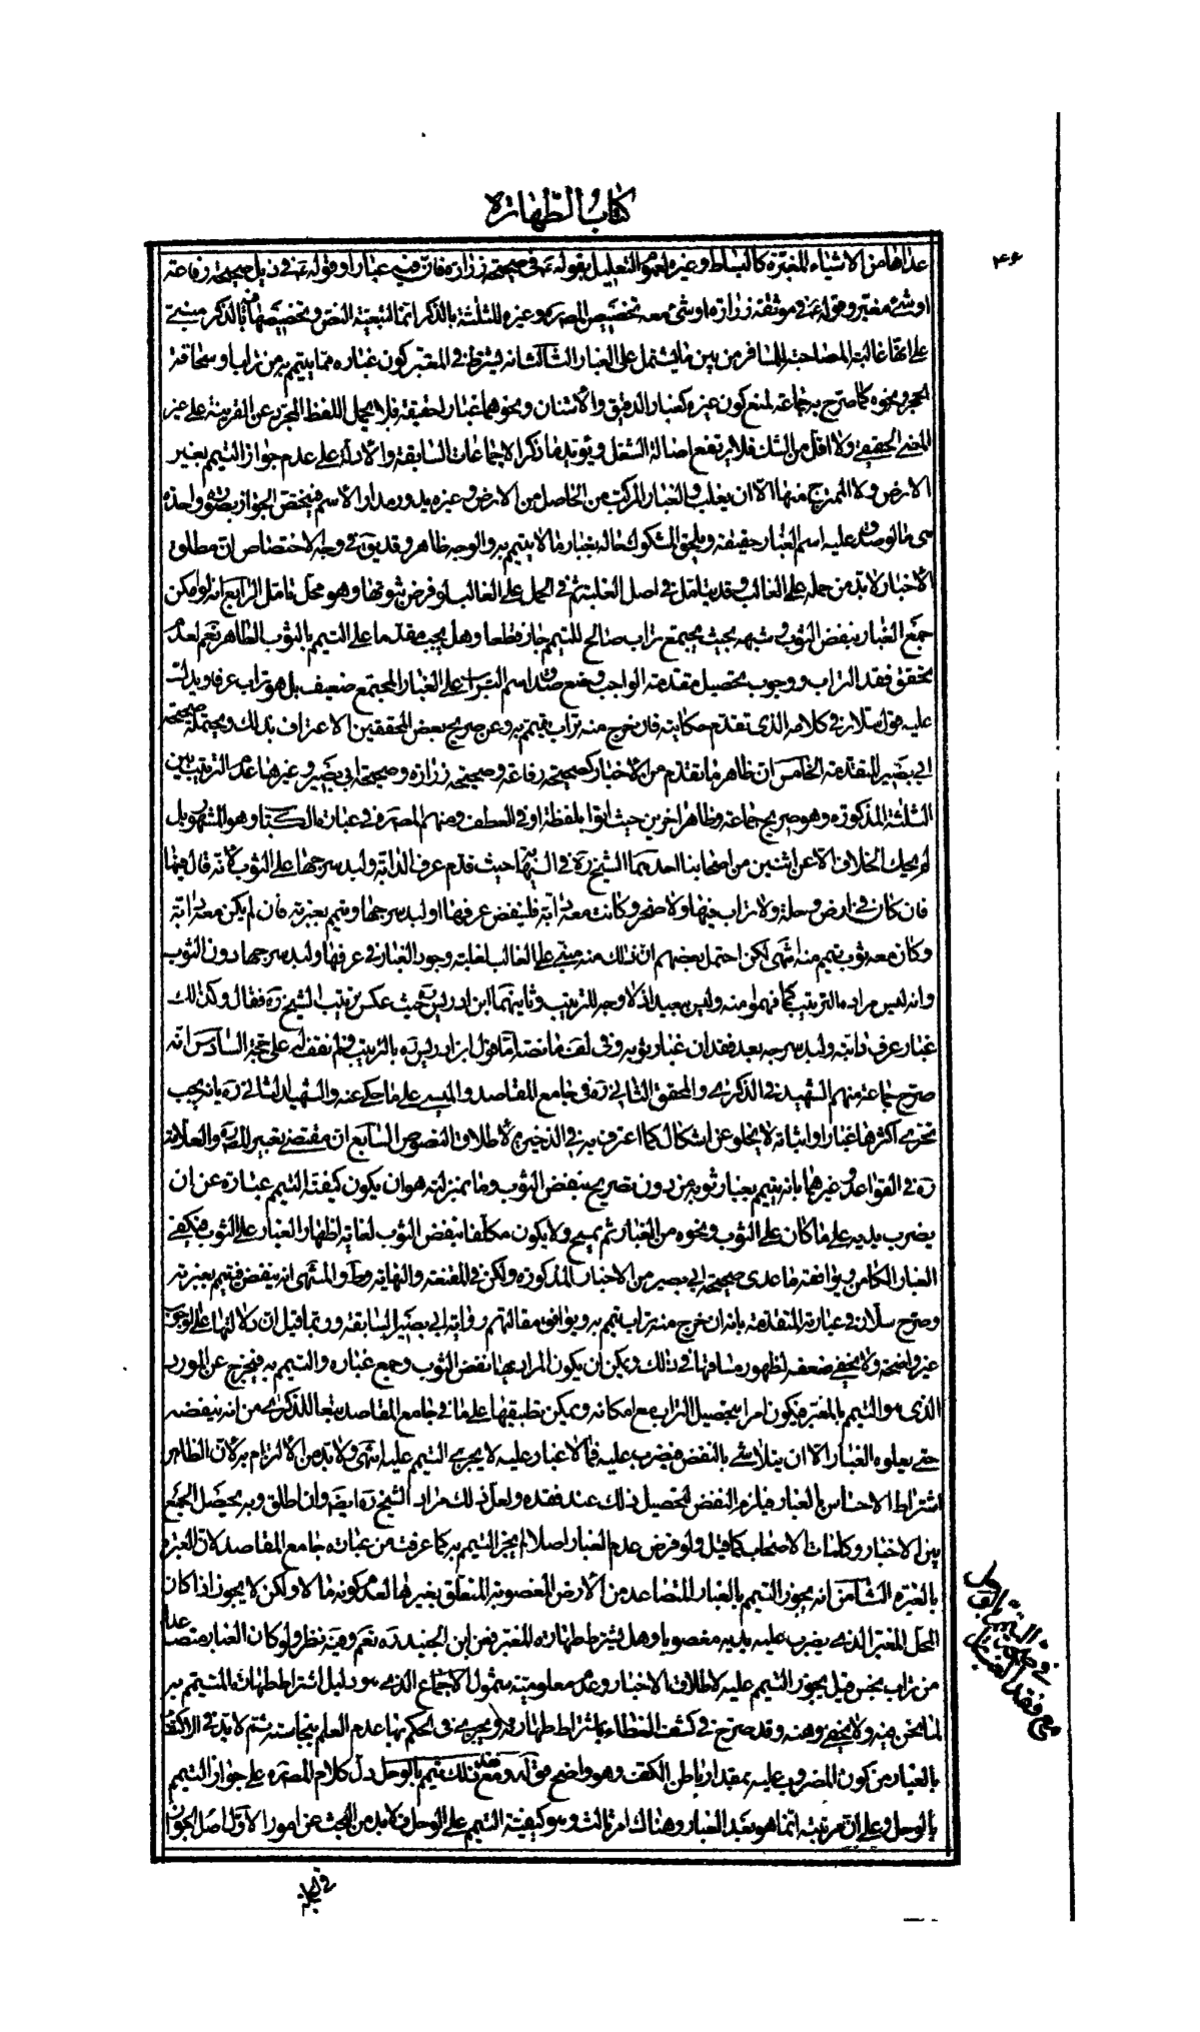 كتاب الطهارة
۴۶
عداها من الاشياء المغبرة كالبساط وغيره لعموم التعليل بقوله ع في صحيحة زرارة فان فيه غبارا وقوله ع في ذيل صحيحة رفاعة
او شيء مغبر وقوله ع في موثقة زرارة او شيء معه تخصيص المصره وغيره للثلثة بالذكر انما لتبعية النص وتخصيصها فيه بالذكر مبني
على انها غالبة المصاحبة للمسافر من بين ما يشتمل على الغبار الثالث انه يشترط في المغبر كون غباره مما يتيمم به من تراب او سحاقة
الحجر ونحوه كما صرح به جماعة لمنع كون غيره كغبار الدقيق والأشنان ونحوهما غبارا حقيقة فلا يحمل اللفظ المجرد عن القرينة على غير
المعنى الحقيقي ولا اقل من الشك فلا يرتفع اصالة الشغل ويؤيد ما ذكر الاجماعات السابقة والأدلة على عدم جواز التيمم بغير
الارض ولا الممتزج منها الا ان يغلب والغبار المركب من الحاصل من الارض وغيره يدور مدار الأسم فيختص الجواز بصورة واحدة
هي ما لو صدق عليه اسم الغبار حقيقة ويلحق المشكوك حاله بغبار ما لا يتيمم به والوجه ظاهر وقد يق في وجه الاختصاص ان مطلق
الأخبار لا بد من حمله على الغالب وقد يتامل في اصل الغلبة ثم في الحمل على الغالب لو فرض ثبوتها وهو محل تامل الرابع انه لو امكن
جمع الغبار بنفض الثوب وشبهه بحيث يجتمع تراب صالح للتيمم جاز قطعا وهل يجب مقدما على التيمم بالثوب الظاهر نعم لعدم
تحقق فقد التراب ووجوب تحصيل مقدمة الواجب ومنع صدق اسم التراب على الغبار المجتمع ضعيف بل هو تراب عرفا ويدل
عليه قول سلار في كلامه الذي تقدم حكايته فان خرج منه تراب يتيمم به وعن صريح بعض المحققين الاعتراف بذلك ويحتمله صحيحة
ابي بصير المتقدمة الخامس ان ظاهر ما تقدم من الأخبار كصحيحة رفاعة وصحيحة زرارة وصحيحة ابي بصير وغيرها عدم الترتيب بين
الثلثة المذكورة وهو صريح جماعة وظاهر اخرين حيث اتوا بلفظة او في العطف ومنهم المصره في عبارة الكتاب وهو المشهور بل
لم يحك الخلاف الا عن اثنين من اصحابنا احدهما الشيخ ره في النهاية حيث قدم عرف الدابة ولبد سرجها على الثوب لأنه قال فيها
فان كان في ارض وحلة ولا تراب فيها ولا صخر وكانت معه دابة فلينفض عرفها او لبد سرجها ويتيمم بغبرته فان لم يكن معه دابة
وكان معه ثوب تيمم منه انتهى لكن احتمل بعضهم ان ذلك منه مبني على الغالب لغلبة وجود الغبار في عرفها ولبد سرجها دون الثوب
وانه ليس مراده الترتيب كما فهموا منه وليس ببعيد اذ لا وجه للترتيب وثانيهما ابن ادريس ره حيث عكس ترتيب الشيخ ره فقال وكذلك
غبار عرف دابته ولبد سرجه بعد فقدان غبار ثوبه وفي لف ما نصه اما قول ابن ادريس ره بالترتيب فلم نقف له على حجة السادس انه
صرح جماعة منهم الشهيد في الذكرى والمحقق الثاني ره في جامع المقاصد والميسي على ما حكي عنه والشهيد الثاني ره بانه يجب
تحري اكثرها غبارا واثباته لا يخلو عن اشكال كما اعترف به في الذخيرة لأطلاق النصوص السابع ان مقتضى تعبير المصره والعلامة
ره في القواعد وغيرهما بانه يتيمم بغبار ثوبه من دون تصريح بنفض الثوب وما بمنزلته هو ان يكون كيفية التيمم عبارة عن ان
يضرب يديه على ما كان على الثوب ونحوه من الغبار ثم يمسح ولا يكون مكلفا بنفض الثوب لغاية اظهار الغبار على الثوب فيكفي
الغبار الكامن ويوافقه ما عدى صحيحة ابي بصير من الاخبار المذكورة ولكن في المقنعة والنهاية وط والمنتهى انه ينفض فيتيمم بغبرته
وصرح سلار في عبارته المتقدمة بانه ان خرج منه تراب تيمم به ويوافق مقالتهم رواية ابي بصير السابقة وربما قيل ان دلالتها على الوجوب
غير واضحة ولا يخفى ضعفه لظهور مساقها في ذلك ويمكن ان يكون المراد بها نفض الثوب وجمع غباره والتيمم به فيخرج عن المورد
الذي هو التيمم بالمغبر فيكون امرا بتحصيل التراب مع امكانه ويمكن تطبيقها على ما في جامع المقاصد تبعا للذكرى من انه ينفضه
حتى يعلوه الغبار الا ان يتلاشى بالنفض فيضرب عليه فما لا غبار عليه لا يجزي التيمم عليه انتهى ولا بد من الألتزام به لان الظاهر
اشتراط الاحساس بالغبار فيلزم النفض لتحصيل ذلك عند فقده ولعل ذلك مراد الشيخ ره ايضا وان اطلق وبه يحصل الجمع
بين الاخبار وكلمات الاصحاب كما قيل ولو فرض عدم الغبار اصلا لم يجز التيمم به كما عرفت من عبارة جامع المقاصد لان العبرة
بالغبرة الثامن انه يجوز التيمم بالغبار المتصاعد من الأرض المغصوبة المتعلق بغيرها لعدم كونه مالا ولكن لا يجوز اذا كان
المحل المغبر الذي يضرب عليه يديه مغصوبا وهل يشترط طهارة المغبر فعن ابن الجنيد ره نعم وفيه نظر ولو كان الغبار متصاعدا
من تراب نجس قيل يجوز التيمم عليه لاطلاق الاخبار وعدم معلومية شمول الاجماع الذي هو دليل اشتراط طهارة المتيمم به
لما نحن فيه ولا يخفى وهنه وقد صرح في كشف الغطاء باشتراط طهارته ويجري في الحكم بها عدم العلم بنجاسته ثم لا بد في الاكتفاء
بالغبار من كون المضروب عليه بمقدار باطن الكف وهو واضح قوله ومع فقد ذلك تيمم بالوحل دل كلام المصره على جواز التيمم
بالوحل وعلى ان مرتبته انما هو بعد الغبار وهناك امر ثالث وهو كيفية التيمم على الوحل فلا بد من البحث عن امور الأول اصل الجواز
في الجملة